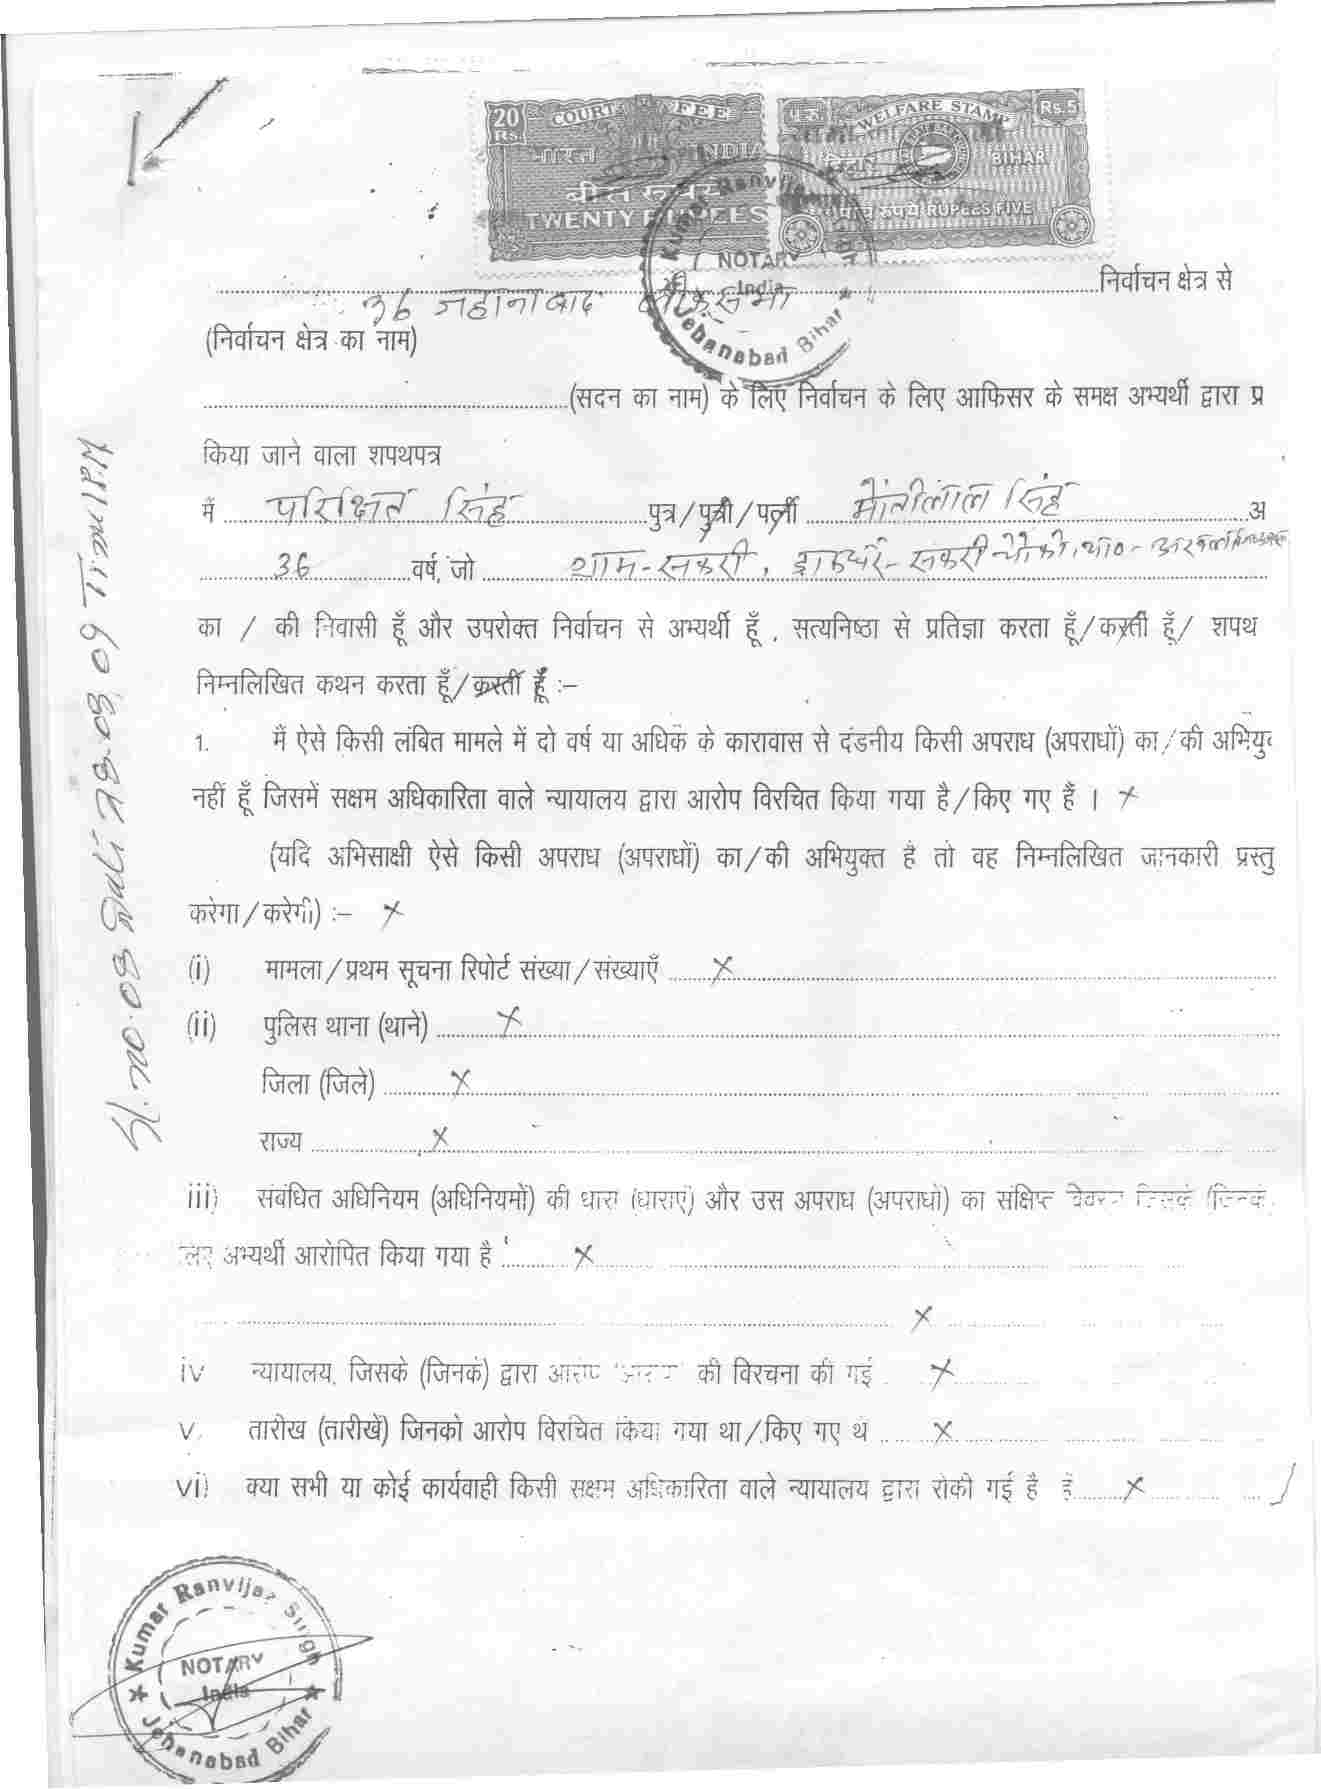 20 Rs. COURT FEE
भारत INDIA
बीस रुपये
TWENTY RUPEES
WELFARE STAMP Rs. 5
बिहार BIHAR
पांच रुपये RUPEES FIVE
Kumar Ranvijay
NOTARY
India
Jehanabad Bihar
36 जहानाबाद लोकसभा निर्वाचन क्षेत्र से
(निर्वाचन क्षेत्र का नाम)
(सदन का नाम) के लिए निर्वाचन के लिए आफिसर के समक्ष अभ्यर्थी द्वारा प्र
किया जाने वाला शपथपत्र
मैं परिक्षित सिंह पुत्र/पुत्री/पत्नी मोतीलाल सिंह अ
36 वर्ष, जो ग्राम-सकरी, डाकघर-सकरी चौकी, थाना-
का / की निवासी हूँ और उपरोक्त निर्वाचन से अभ्यर्थी हूँ , सत्यनिष्ठा से प्रतिज्ञा करता हूँ/करती हूँ/ शपथ
निम्नलिखित कथन करता हूँ/करती हूँ :–
1. मैं ऐसे किसी लंबित मामले में दो वर्ष या अधिक के कारावास से दंडनीय किसी अपराध (अपराधों) का/की अभियु
नहीं हूँ जिसमें सक्षम अधिकारिता वाले न्यायालय द्वारा आरोप विरचित किया गया है/किए गए हैं । ×
(यदि अभिसाक्षी ऐसे किसी अपराध (अपराधों) का/की अभियुक्त है तो वह निम्नलिखित जानकारी प्रस्तु
करेगा/करेगी) :– ×
(i) मामला/प्रथम सूचना रिपोर्ट संख्या/संख्याएँ ×
(ii) पुलिस थाना (थाने) ×
जिला (जिले) ×
राज्य ×
iii) संबंधित अधिनियम (अधिनियमों) की धारा (धाराएं) और उस अपराध (अपराधों) का संक्षिप्त विवरण जिसके (जिनके
लिए अभ्यर्थी आरोपित किया गया है ×
×
iv न्यायालय, जिसके (जिनके) द्वारा आरोप की विरचना की गई ×
v. तारीख (तारीखें) जिनको आरोप विरचित किया गया था/किए गए थे ×
vi) क्या सभी या कोई कार्यवाही किसी सक्षम अधिकारिता वाले न्यायालय द्वारा रोकी गई है हैं ×
Kumar Ranvijay Singh
NOTARY
India
Jehanabad Bihar